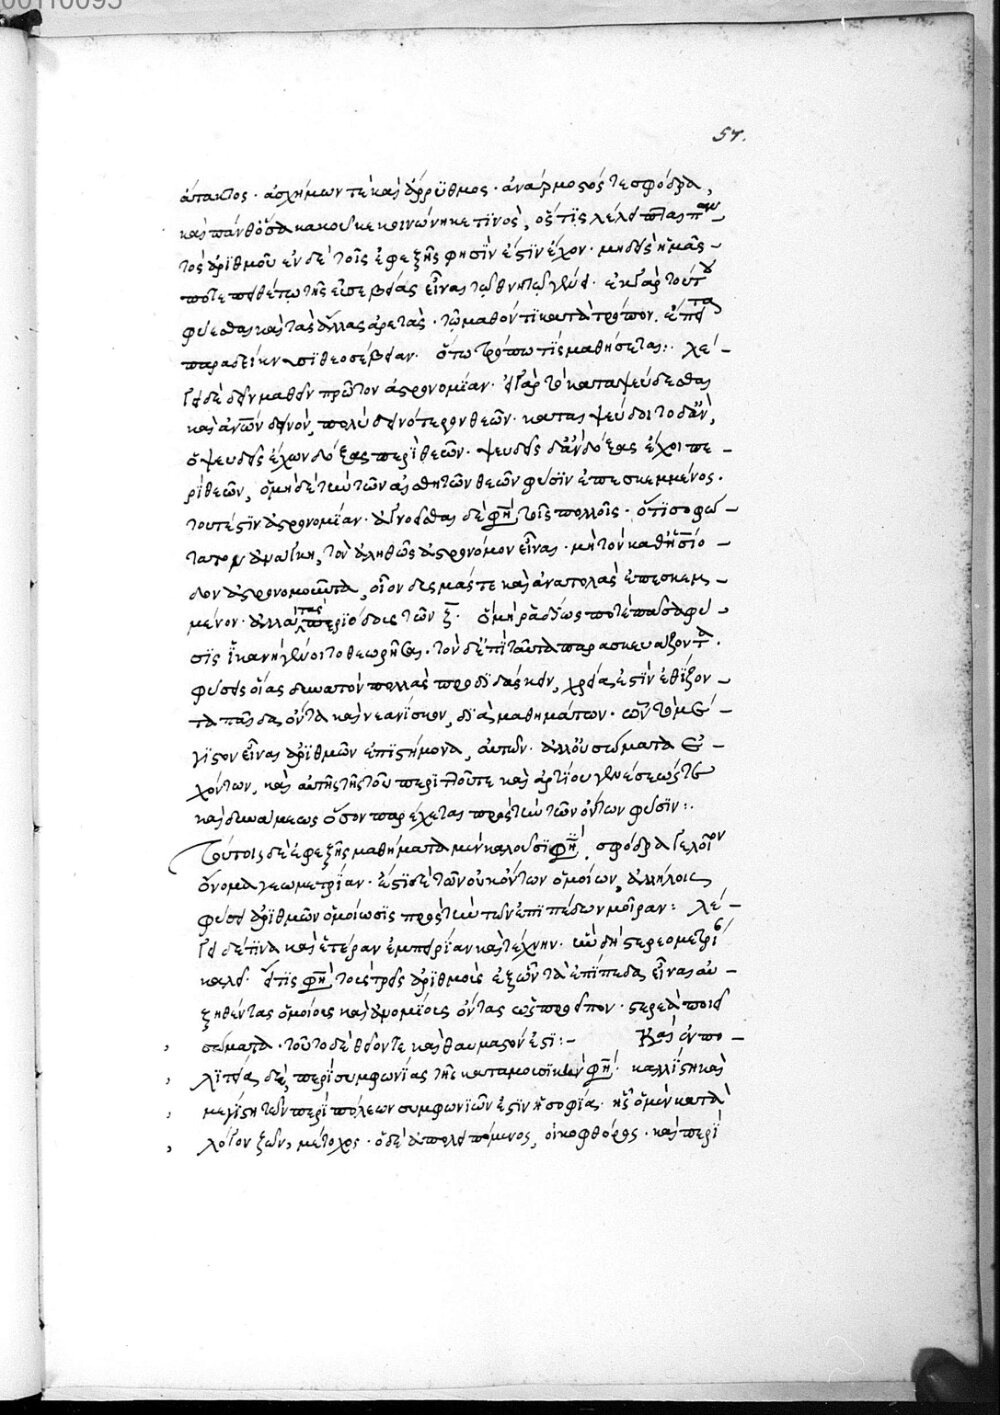 57.
ἄτακτος· ἀσχήμων τὲ καὶ ἄρρυθμος· ἀνάρμοστός τε σφόδρα,
καὶ πάνθ' ὁπόσα κακοῦ κεκοινώνηκε τινὸς, ὅστις λέλειπται παν
τὸς ἀριθμοῦ ἐν δὲ τοῖς ἐφεξῆς φησὶν ἐστὶν ἔχον· μηδεὶς ἡμᾶς
ποτε πειθέτω τῆς εὐσεβείας εἶναι τῷ θνητῷ γένει· ἐκ γὰρ τούτου
φύεσθαι καὶ τὰς ἄλλας ἀρετὰς· τῷ μαθόντι κατὰ τρόπον. ἔπειτα
παραδείκνυσι θεοσέβειαν· ὅτῳ τρόπῳ τὶς μαθήσεται:. λέ-
γει δὲ δεῖν μαθεῖν πρῶτον ἀστρονομίαν· εἰ γὰρ τὸ καταψεύδεσθαι
καὶ ἀνθρώπων δεινὸν, πολὺ δεινότερον θεῶν· καταψεύδοιτο δ' ἂν,
ὁ ψευδεῖς ἔχων δόξας περὶ θεῶν· ψευδεῖς δ' ἂν δόξας ἔχοι πε-
ρὶ θεῶν, ὁ μηδὲ τὴν τῶν αἰσθητῶν θεῶν φύσιν ἐπεσκεμμένος·
τουτέστιν ἀστρονομίαν· ἀγνοεῖσθαι δὲ φησὶ τοῖς πολλοῖς· ὅτι σοφώ-
τατον ἀνάγκη, τὸν ἀληθῶς ἀστρονόμον εἶναι· μὴ τὸν καθ' ἡσίο-
δον ἀστρονομοῦντα, οἷον δυσμάς τε καὶ ἀνατολὰς ἐπεσκεμ-
μένον· ἀλλὰ τὰς περιόδους τῶν ζ· ὃ μὴ ῥᾳδίως ποτὲ πᾶσα φύ-
σις ἱκανὴ γένοιτο θεωρῆσαι· τὸν δ' ἐπὶ ταῦτα παρασκευάζοντα
φύσεις οἵας δυνατὸν πολλὰ προδιδάσκειν, χρεία ἐστὶν ἐθίζον-
τα παῖδα ὄντα καὶ νεανίσκον, διὰ μαθημάτων· ὧν τὸ μέ-
γιστον εἶναι ἀριθμῶν ἐπιστήμονα, αὐτῶν· ἀλλ' οὐ σώματα ἐ-
χόντων, καὶ αὐτῆς τῆς τοῦ περιττοῦ τε καὶ ἀρτίου γενέσεώς τε
καὶ δυνάμεως ὅσον παρέχεται πρὸς τὴν τῶν ὄντων φύσιν:.
Τούτοις δὲ ἐφεξῆς μαθήματα μὲν καλοῦσι φησὶ, σφόδρα γελοῖον
ὄνομα γεωμετρίαν· ἔστι δὲ τῶν οὐκ ὄντων ὁμοίων, ἀλλήλοις
φύσει ἀριθμῶν ὁμοίωσις πρὸς τὴν τῶν ἐπιπέδων μοῖραν: λέ-
γει δέ τινα καὶ ἑτέραν ἐμπειρίαν καὶ τέχνην· ἣν δὴ στερεομετρίαν
καλεῖ· εἴ τις φησὶ τοὺς τρεῖς ἀριθμοὺς ἐξ ὧν τὰ ἐπίπεδα, εἶναι αὐ-
ξηθέντας ὁμοίους καὶ ἀνομοίους ὄντας ὡς προεῖπον· στερεὰ ποιεῖ
σώματα· τοῦτο δὲ θεῖόν τε καὶ θαυμαστόν ἐστι:- Καὶ ἐν πο-
λιτείας δὲ, περὶ συμφωνίας τῆς κατὰ μουσικὴν φησὶ· καλλίστη καὶ
μεγίστη τῶν περὶ πόλεων συμφωνιῶν ἐστὶν ἡ σοφία· ἧς ὁ μὲν κατὰ
λόγον ζῶν, μέτοχος· ὁ δὲ ἀπολειπόμενος, οἰκοφθόρος· καὶ περὶ